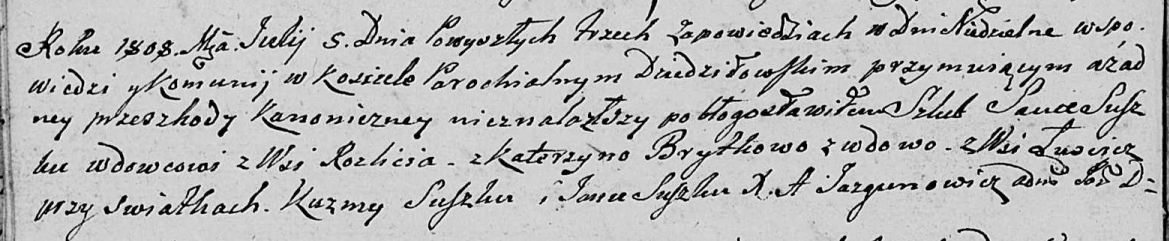 Roku 1808. Mca. Julij 5. Dnia Powyszłych trzech Zapowiedziach w Dni Niedzielne w spo.
wiedzi y Komunij w Kosciele Parochialnym Dziedziłowskim przymuiącym a żad
ney przeszkody Kanoniczney nieznalazłszy pobłogosławiłem Szlub Sauce Susz
ku wdowcowi z Wsi Rozlicia - z Katerzyno Brytkowo z wdowo - z Wsi Łusicz
przy swiatkach. Kuzmy Suszku i Jana Suszku X. A Jazgunowicz